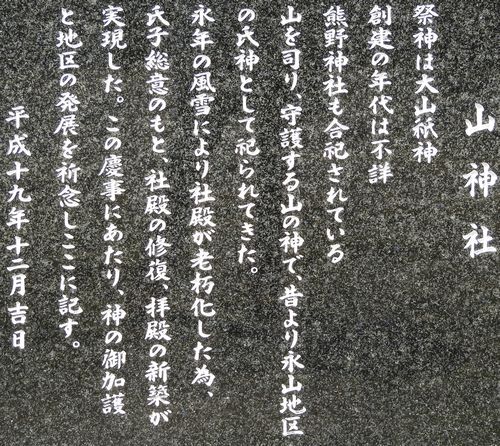 山神社
祭神は大山祇神
創建の年代は不詳
熊野神社も合祀されている
山を司り、守護する山の神で、昔より永山地区
の氏神として祀られてきた。
永年の風雪により社殿が老朽化した為、
氏子総意のもと、社殿の修復、拝殿の新築が
実現した。この慶事にあたり、神の御加護
と地区の発展を祈念しここに記す。
平成十九年十二月吉日